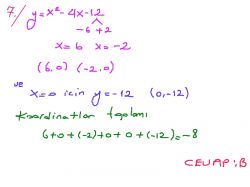 7./ y=x²-4x-12
-6 +2
x=6 x=-2
(6,0) (-2,0)
ve
x=0 için y=-12 (0,-12)
Koordinatlar toplamı
6+0+(-2)+0+0+(-12)=-8
CEVAP:B